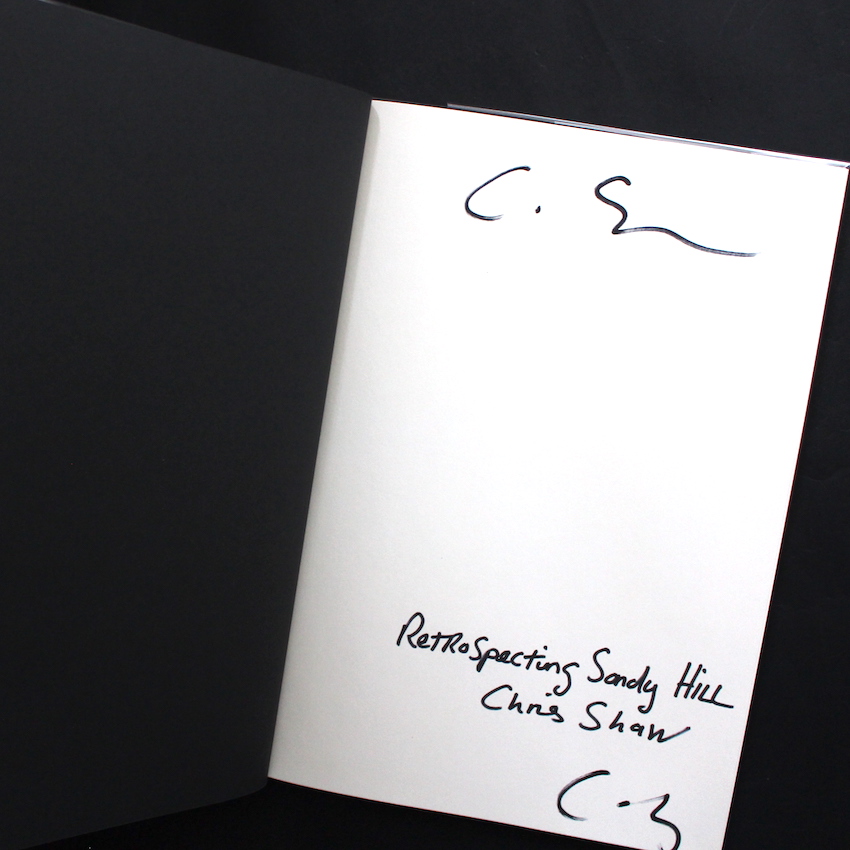 C. S
Retrospecting Sandy Hill
Chris Shaw
C.